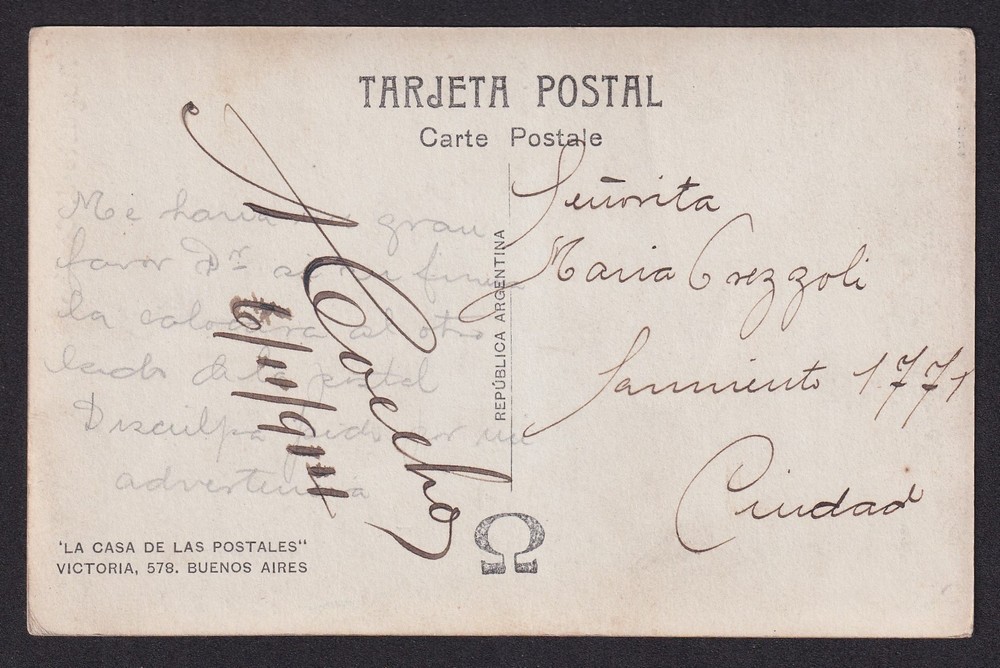 TARJETA POSTAL
Carte Postale
Me haria gran
favor Dr
la colocara al otro
lado de la postal
Disculpa pido por mi
advertencia
6/11/911
Señorita
Maria Crezzoli
Sarmiento 1771
Ciudad
REPÚBLICA ARGENTINA
'LA CASA DE LAS POSTALES"
VICTORIA, 578. BUENOS AIRES